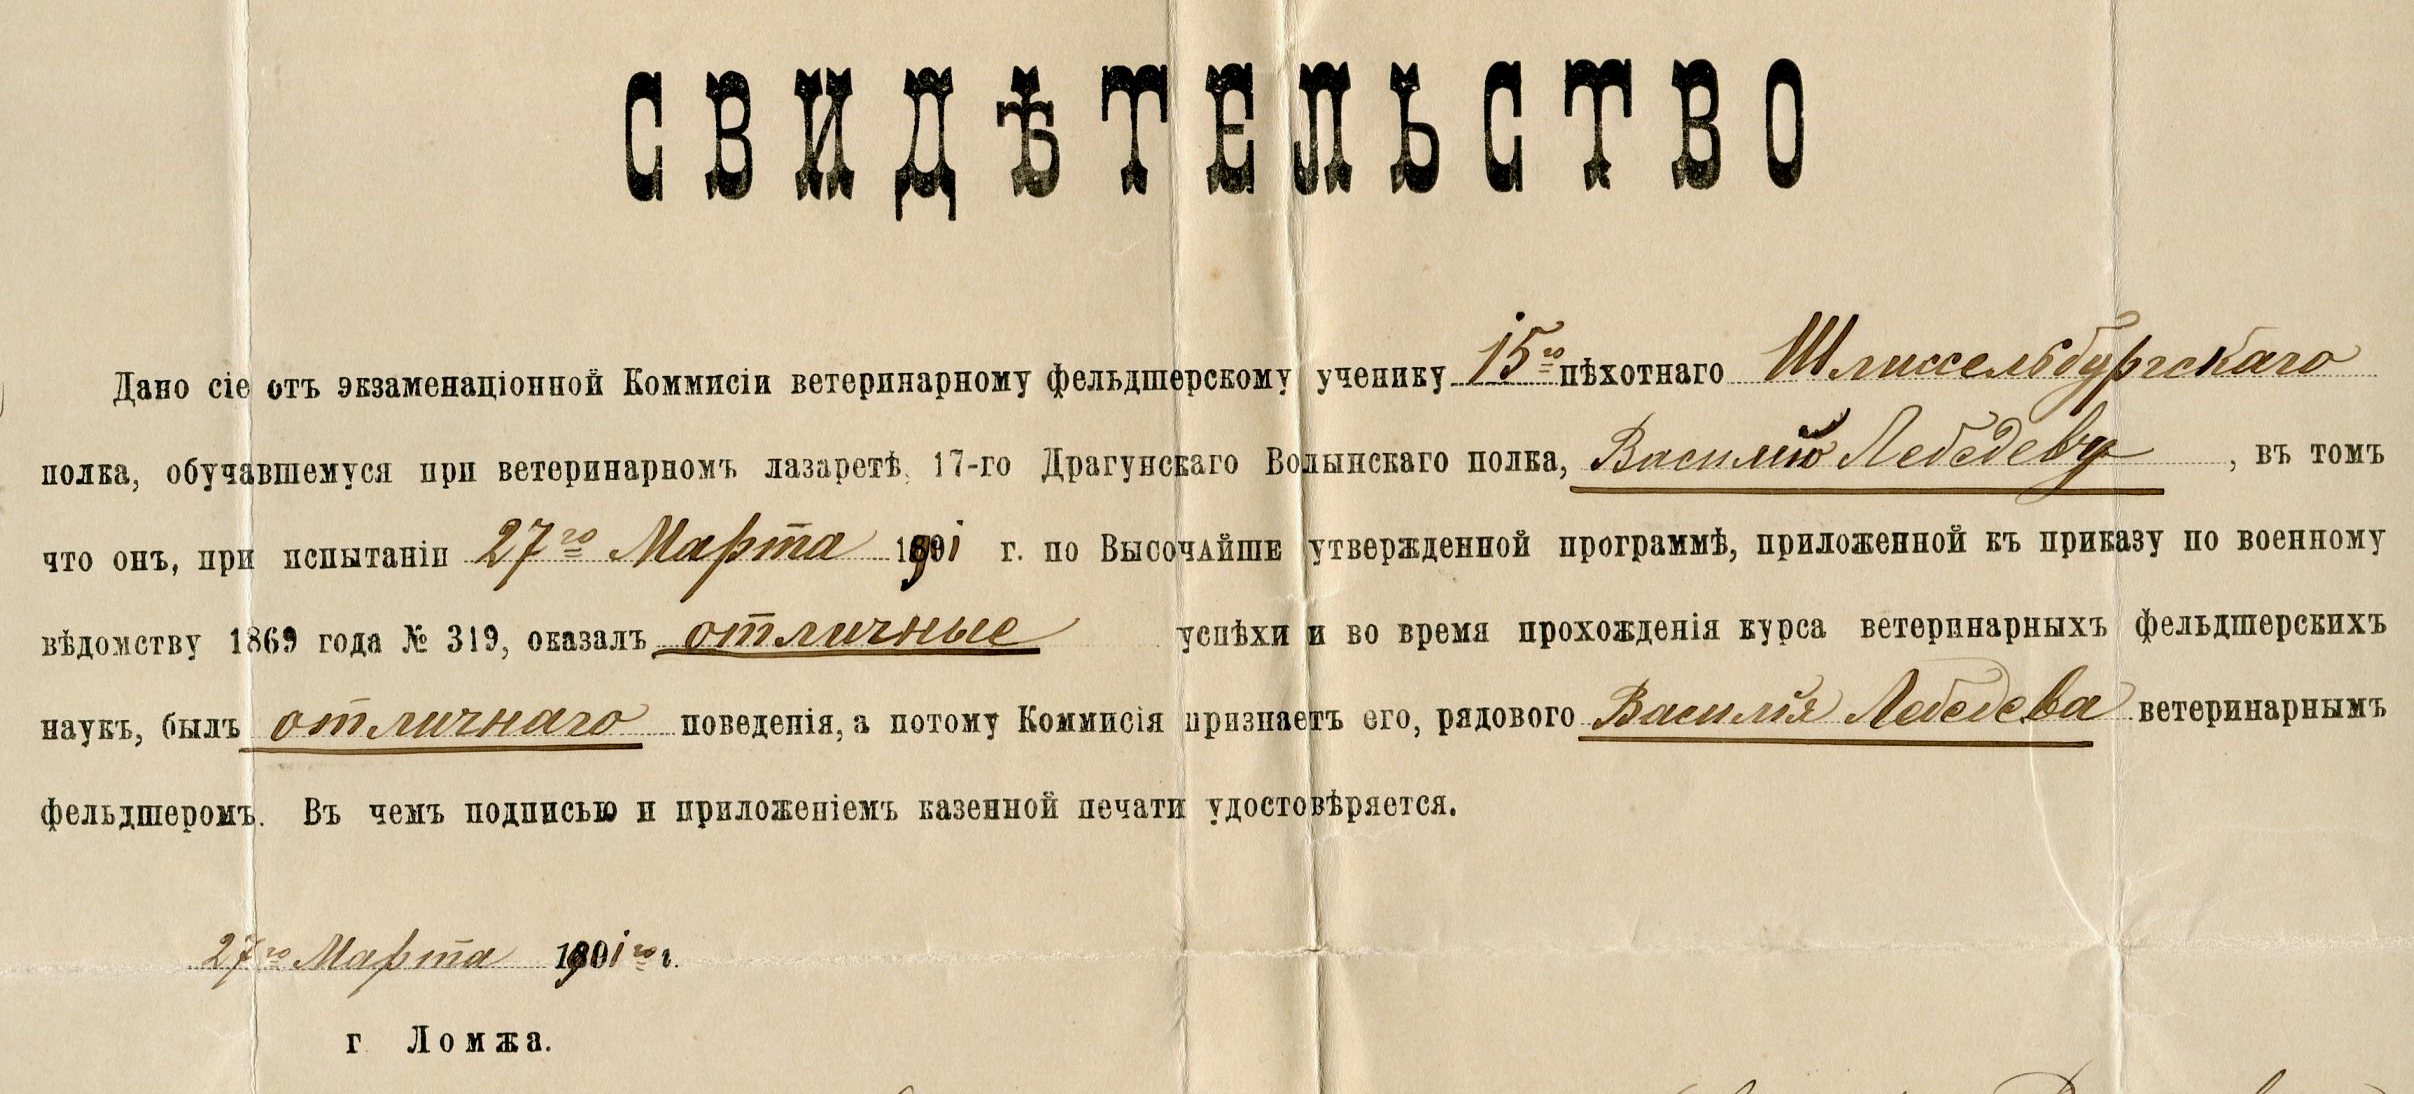 СВИДѢТЕЛЬСТВО
Дано сіе отъ экзаменаціонной Коммисіи ветеринарному фельдшерскому ученику 15го пѣхотнаго Шлиссельбургскаго
полка, обучавшемуся при ветеринарномъ лазаретѣ, 17-го Драгунскаго Волынскаго полка, Василію Лебедеву, въ томъ
что онъ, при испытаніи 27го Марта 1901 г. по Высочайше утвержденной программѣ, приложенной къ приказу по военному
вѣдомству 1869 года № 319, оказалъ отличные успѣхи и во время прохожденія курса ветеринарныхъ фельдшерскихъ
наукъ, былъ отличнаго поведенія, а потому Коммисія признаетъ его, рядового Василія Лебедева ветеринарнымъ
фельдшеромъ. Въ чемъ подписью и приложеніемъ казенной печати удостовѣряется.
27го Марта 1901го г.
г Ломжа.